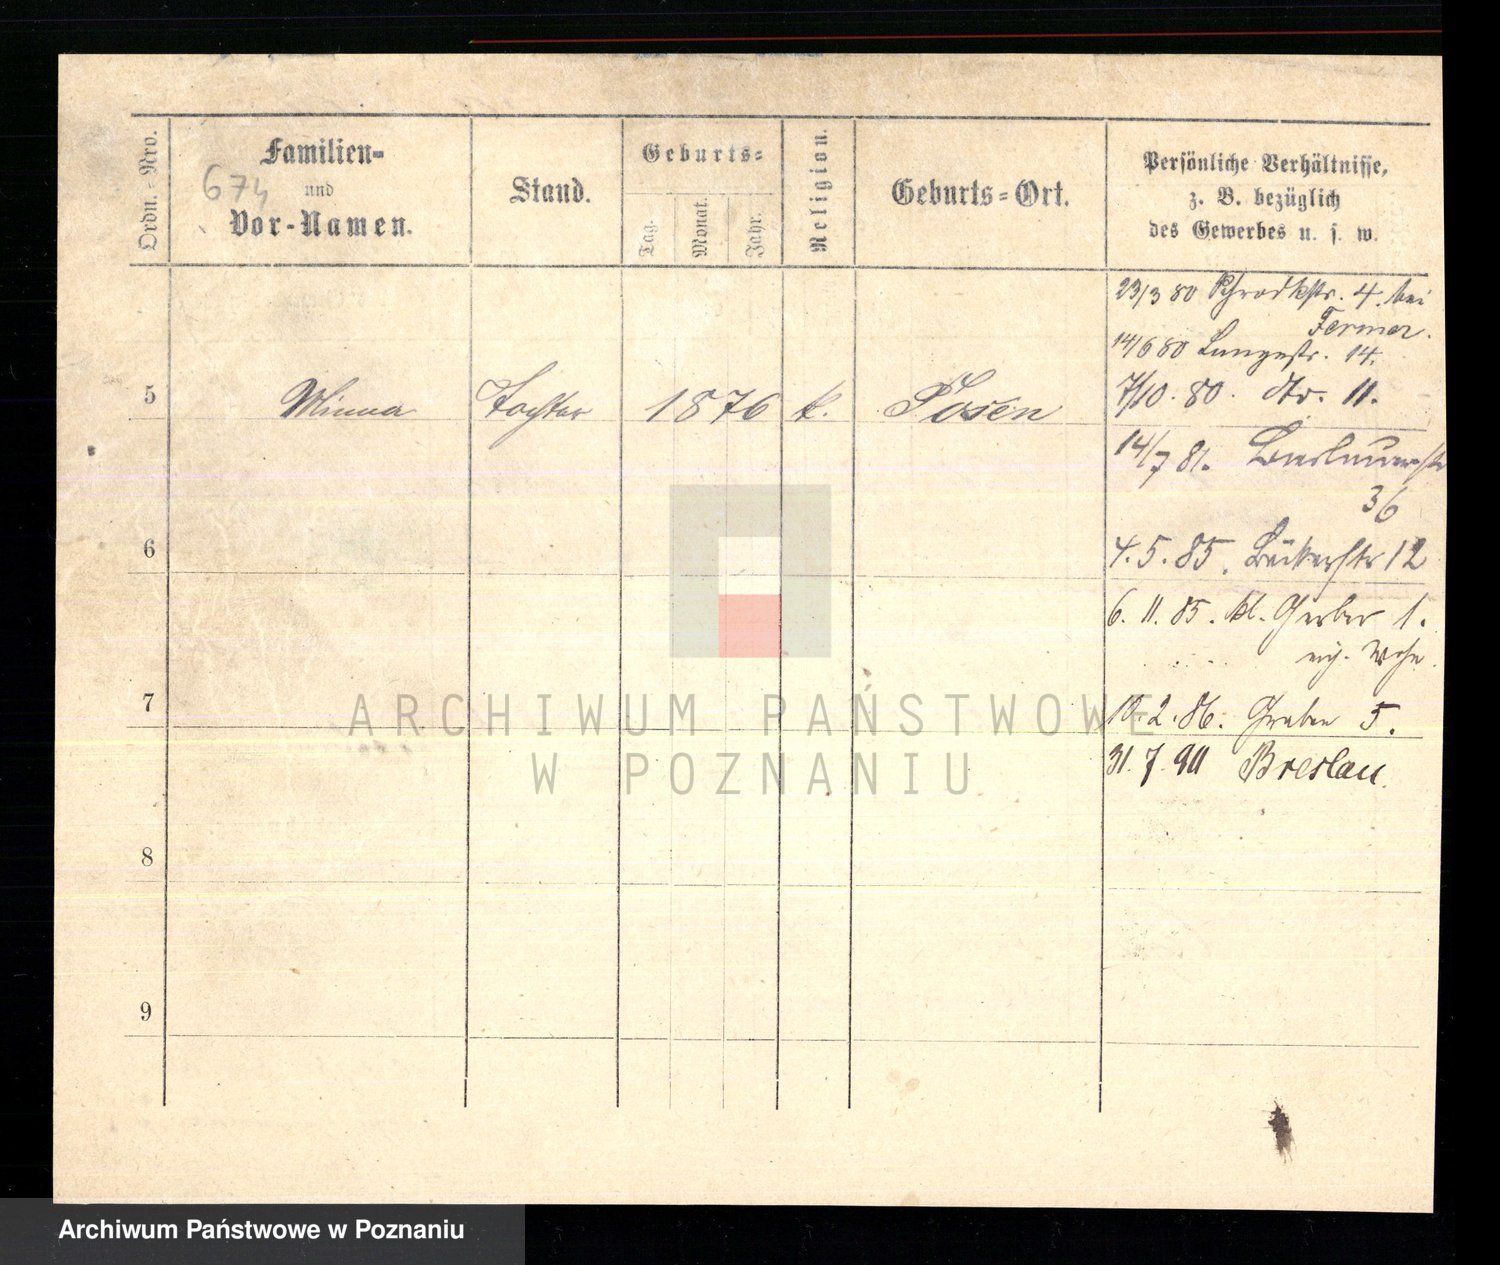 Ordn.-Nro.
Familien-
und
Vor-Namen.
674
Stand.
Geburts-
Tag.
Monat.
Jahr.
Religion.
Geburts-Ort.
Persönliche Verhältnisse,
z. B. bezüglich
des Gewerbes u. s. w.
23/3 80 Schrodkstr. 4. bei
Fermer.
14/6 80 Langestr. 14.
5 Minna Tochter 1876 k. Posen 7/10. 80. dto. 11.
14/7 81. Breslauerstr
36
6
4. 5. 85. Bäckerstr 12
6. 11. 85. kl. Gerber 1.
eig. Wohn.
7
10. 2. 86. Graben 5.
31. 7. 90 Breslau.
8
9
ARCHIWUM PAŃSTWOWE
W POZNANIU
Archiwum Państwowe w Poznaniu